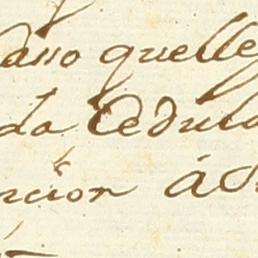 dano quelleg
da Cedula
ncion á S